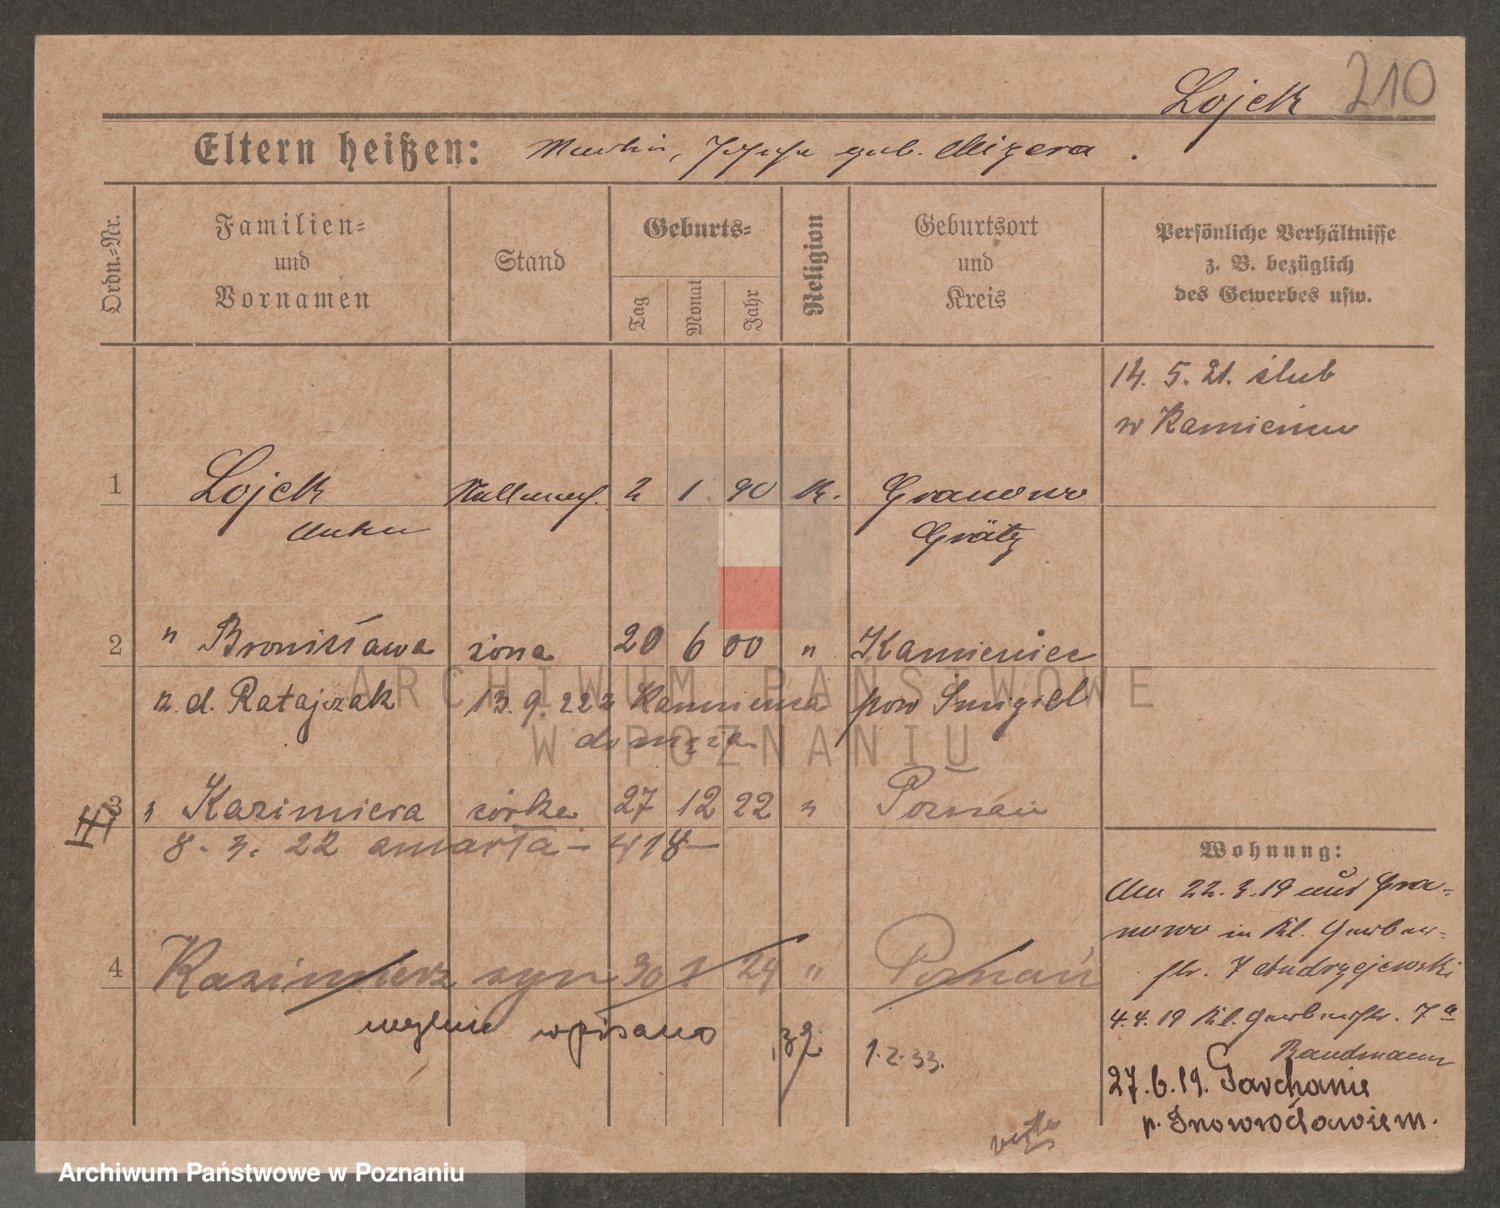 Lojek 210
Eltern heißen: Martin, Josefa geb. Mizera.
Ordn.-Nr.
Familien-
und
Vornamen
Stand
Geburts-
Tag
Monat
Jahr
Religion
Geburtsort
und
Kreis
Persönliche Verhältnisse
z. B. bezüglich
des Gewerbes usw.
14. 5. 21. ślub
w Kamieńcu
1 Lojek 2 1 90 K. Granowo
Anton Grätz
2 " Bronisława żona 20 6 00 " Kamieniec
z. d. Ratajczak 13. 9. 22 z Kamieńca pow Śmigiel
do męża
3 " Kazimiera córka 27 12 22 " Poznań
8. 3. 22 zmarła - 418 -
4 Kazimierz syn 30 1 24 " Poznań
mylnie wpisano 39. 1.2.33.
Wohnung:
Am 22. 3. 19 aus Gra-
nowo in Kl. Gerber-
str. 7 Andrzejewski
4. 4. 19 Kl. Gerberstr. 7a
Bandmann
27. 6. 19. Parchanie
p. Inowrocławiem.
verte
ARCHIWUM PAŃSTWOWE
W POZNANIU
Archiwum Państwowe w Poznaniu